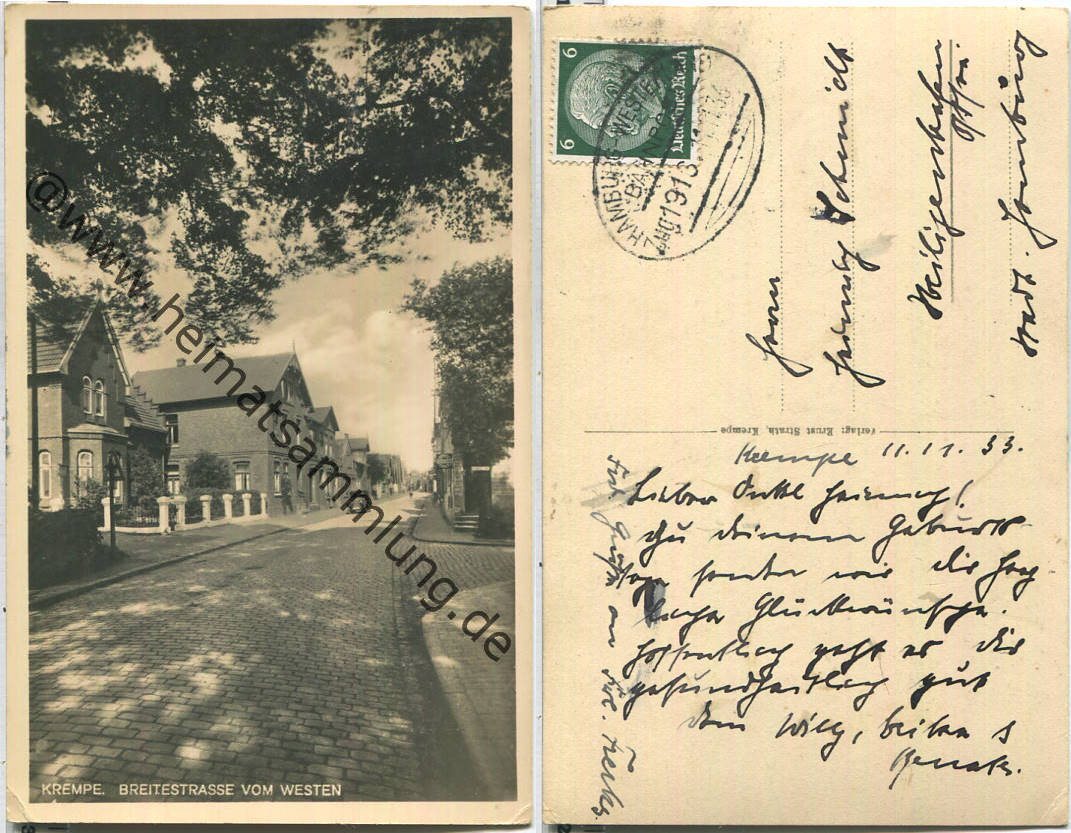 KREMPE. BREITESTRASSE VOM WESTEN
@www.heimatsammlung.de
6 6
Deutsches Reich
HAMBURG-WESTERLAND
BAHNPOST
1913
Herrn
Schmidt
Heiligenhafen
Ostsee
Stadt Hamburg
Verlag: Ernst Strath, Krempe
Krempe 11.11.33.
Lieber Onkel Heinrich!
Zu deinem Geburts-
tag senden wir dir herz
liche Glückwünsche.
Hoffentlich geht es dir
gesundheitlich gut
Dein Willy,
Renate.